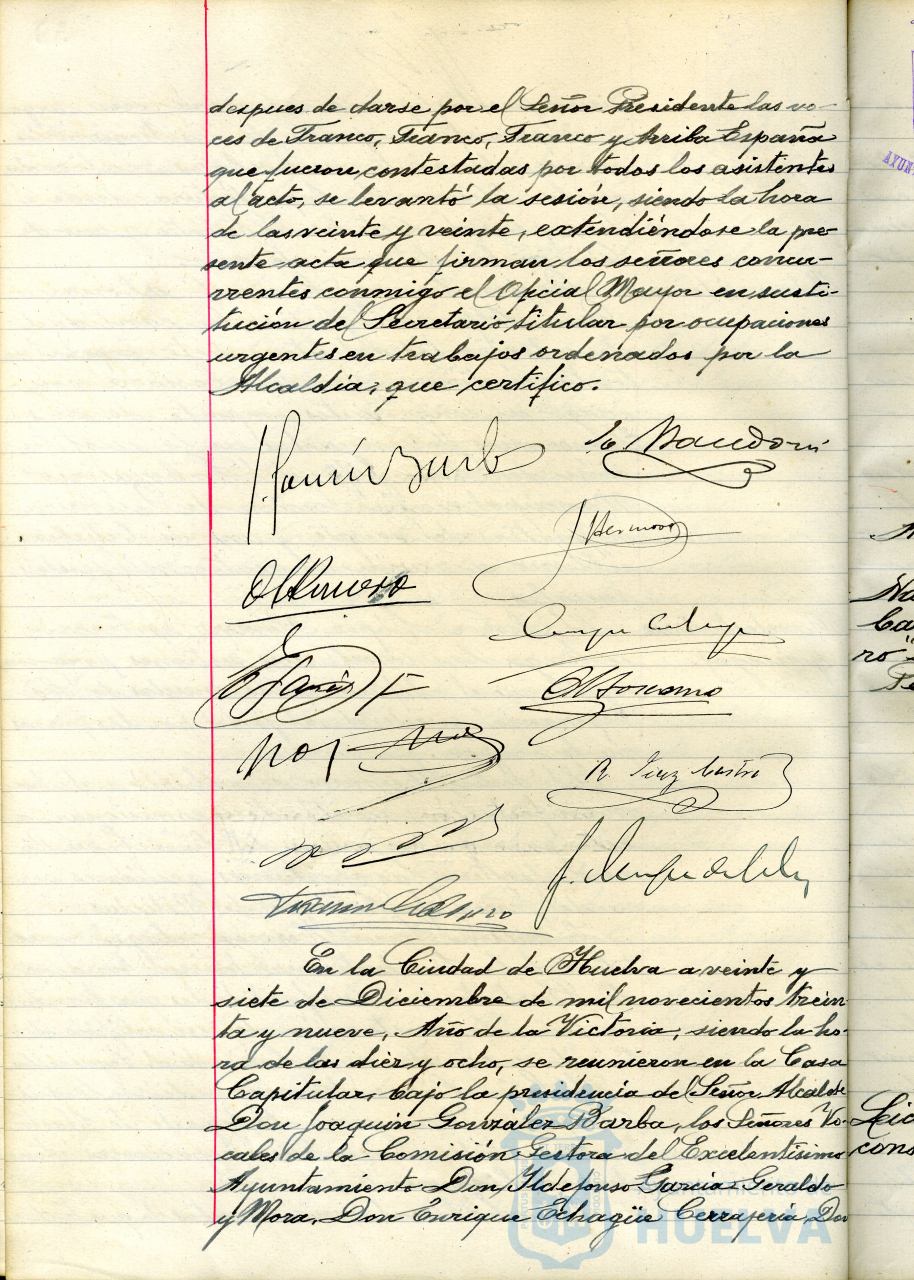 despues de darse por el Señor Presidente las vo-
ces de Franco, Franco, Franco y Arriba España
que fueron contestadas por todos los asistentes
al acto, se levantó la sesión, siendo la hora
de las veinte y veinte, extendiéndose la pre-
sente acta que firman los señores concur-
rrentes conmigo el Oficial Mayor en susti-
tución del Secretario titular por ocupaciones
urgentes en trabajos ordenados por la
Alcaldía, que certifico.
J. Hermoso
R. Diaz Castro
En la Ciudad de Huelva a veinte y
siete de Diciembre de mil novecientos trein
ta y nueve, Año de la Victoria, siendo la ho-
ra de las diez y ocho, se reunieron en la Casa
Capitular, bajo la presidencia del Señor Alcalde
Don Joaquin González Barba, los Señores Vo-
cales de la Comisión Gestora del Excelentísimo
Ayuntamiento Don Ildefonso Garcia Geraldo
y Mora, Don Enrique Echagüe Cerrajería, Don
HUELVA